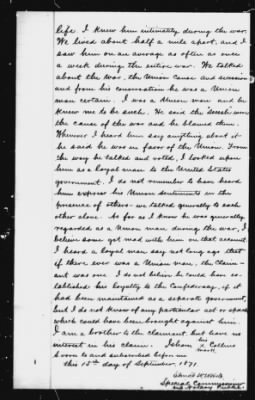 life I knew him intimately during the war.
We lived about half a mile apart, and I
saw him on an average as often as once
a week during the entire war. We talked
about the war, the Union cause and secession
and from his conversation he was a Union
man certain. I was a Union man and he
knew me to be such. He said the
the cause of the war and he blamed them.
Whenever I heard him say anything about it
he said he was in favor of the Union. From
the way he talked and voted, I looked upon
him as a loyal man to the United States
government. I do not remember to have heard
him express his Union sentiments in the
presence of others - we talked generally to each
other alone. As far as I know he was generally
regarded as a Union man during the war, I
believe some got mad with him on that account.
I heard a loyal man say not long ago that
if there ever was a Union man, the claim-
ant was one. I do not believe he could have es-
tablished his loyalty to the Confederacy, if it
had been maintained as a separate government,
but I do not know of any particular act or
which could have been brought against him.
I am a brother to the claimant but have no
interest in his claim. Isham his x mark Collins
Sworn to and subscribed before me
this 15th day of September 1871.
Special Commissioner
and Notary Public